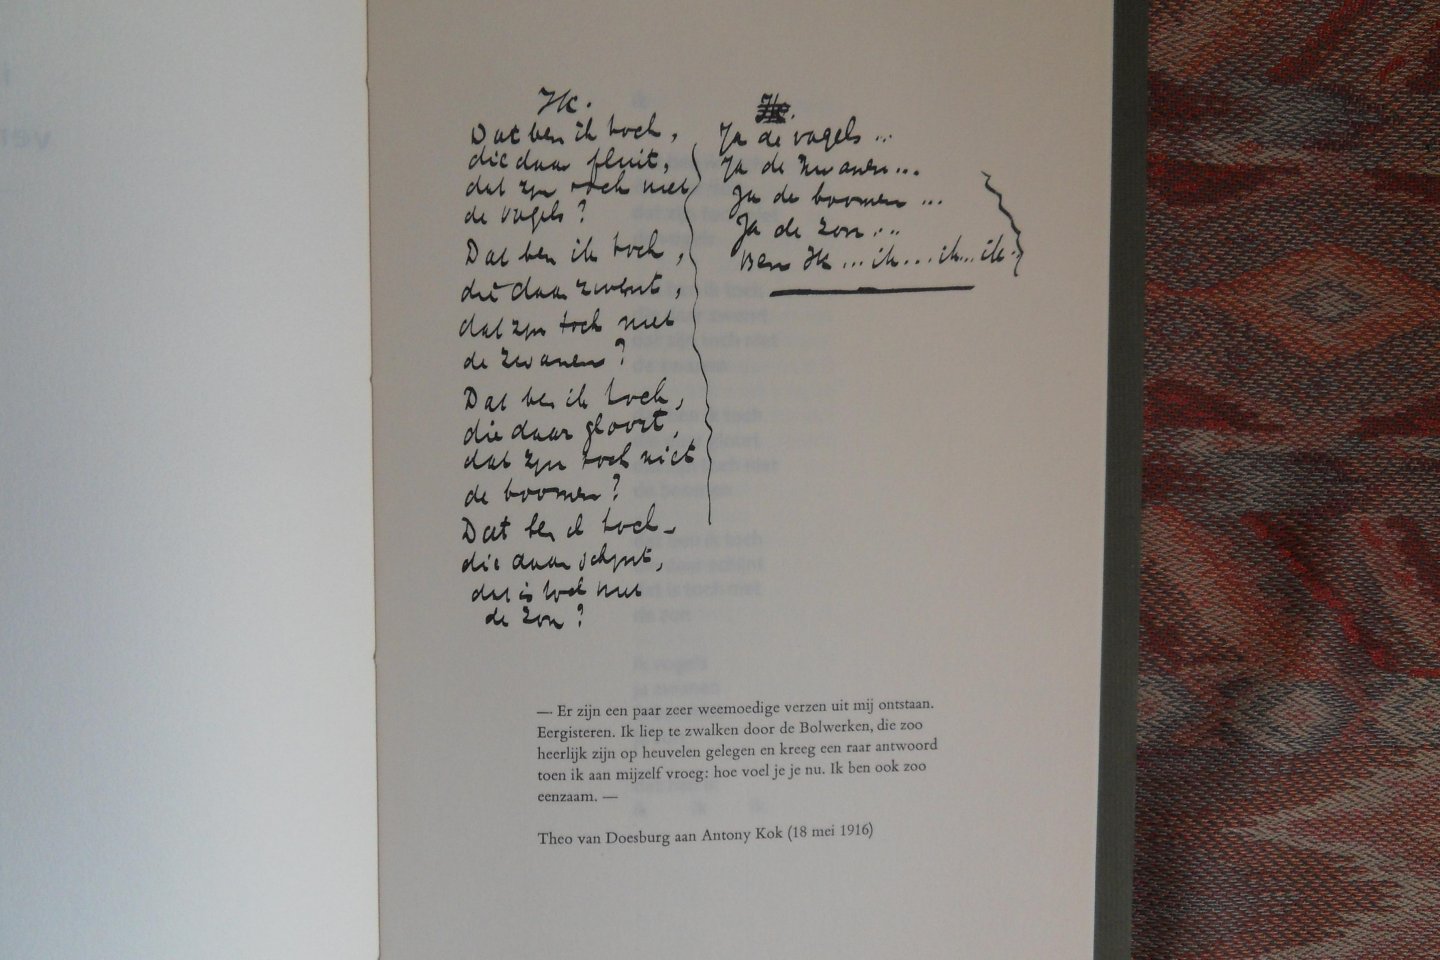 Ik.
Dat ben ik toch,
die daar fluit,
dat zijn toch niet
de vogels?
Dat ben ik toch,
die daar zwemt,
dat zijn toch niet
de zwanen?
Dat ben ik toch,
die daar gloort,
dat zijn toch niet
de boomen?
Dat ben ik toch
die daar schijnt,
dat is toch niet
de zon?
Ja de vogels...
Ja de zwanen...
Ja de boomen...
Ja de zon...
Ben Ik...ik...ik...ik
— Er zijn een paar zeer weemoedige verzen uit mij ontstaan.
Eergisteren. Ik liep te zwalken door de Bolwerken, die zoo
heerlijk zijn op heuvelen gelegen en kreeg een raar antwoord
toen ik aan mijzelf vroeg: hoe voel je je nu. Ik ben ook zoo
eenzaam. —
Theo van Doesburg aan Antony Kok (18 mei 1916)